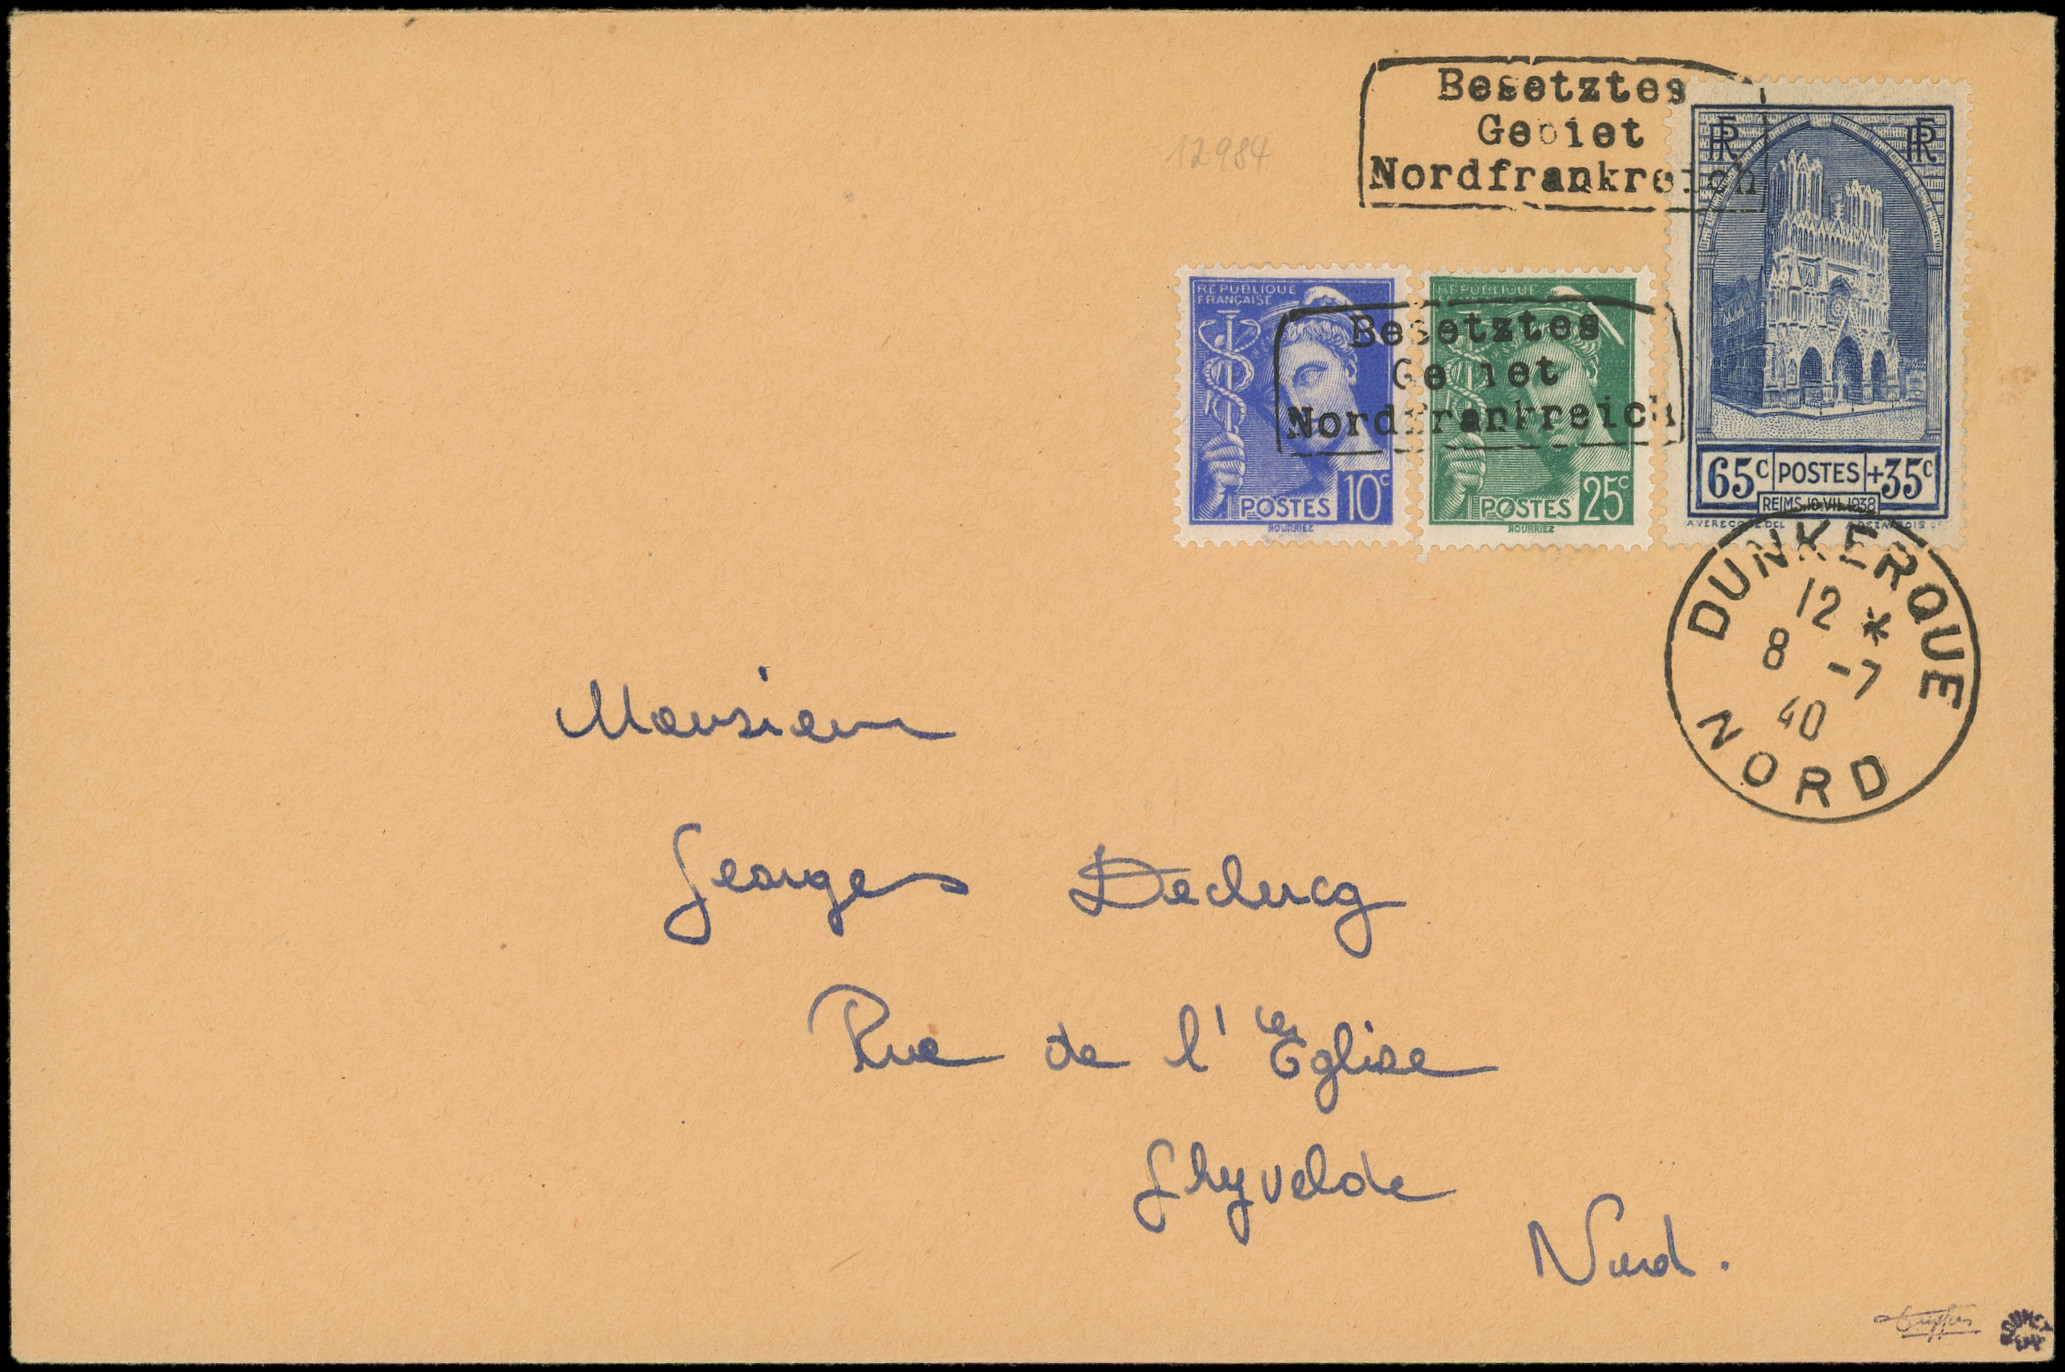 12984
Besetztes
Gebiet
Nordfrankreich
RF RF
65c POSTES +35c
REIMS.10.VII.1938
REPUBLIQUE
FRANÇAISE
POSTES 10c
HOURRIEZ
REPUBLIQUE
POSTES 25c
HOURRIEZ
Besetztes
Gebiet
Nordfrankreich
DUNKERQUE
12 *
8 -7
40
NORD
Monsieur
Georges Declercq
Rue de l'Eglise
Ghyvelde
Nord.